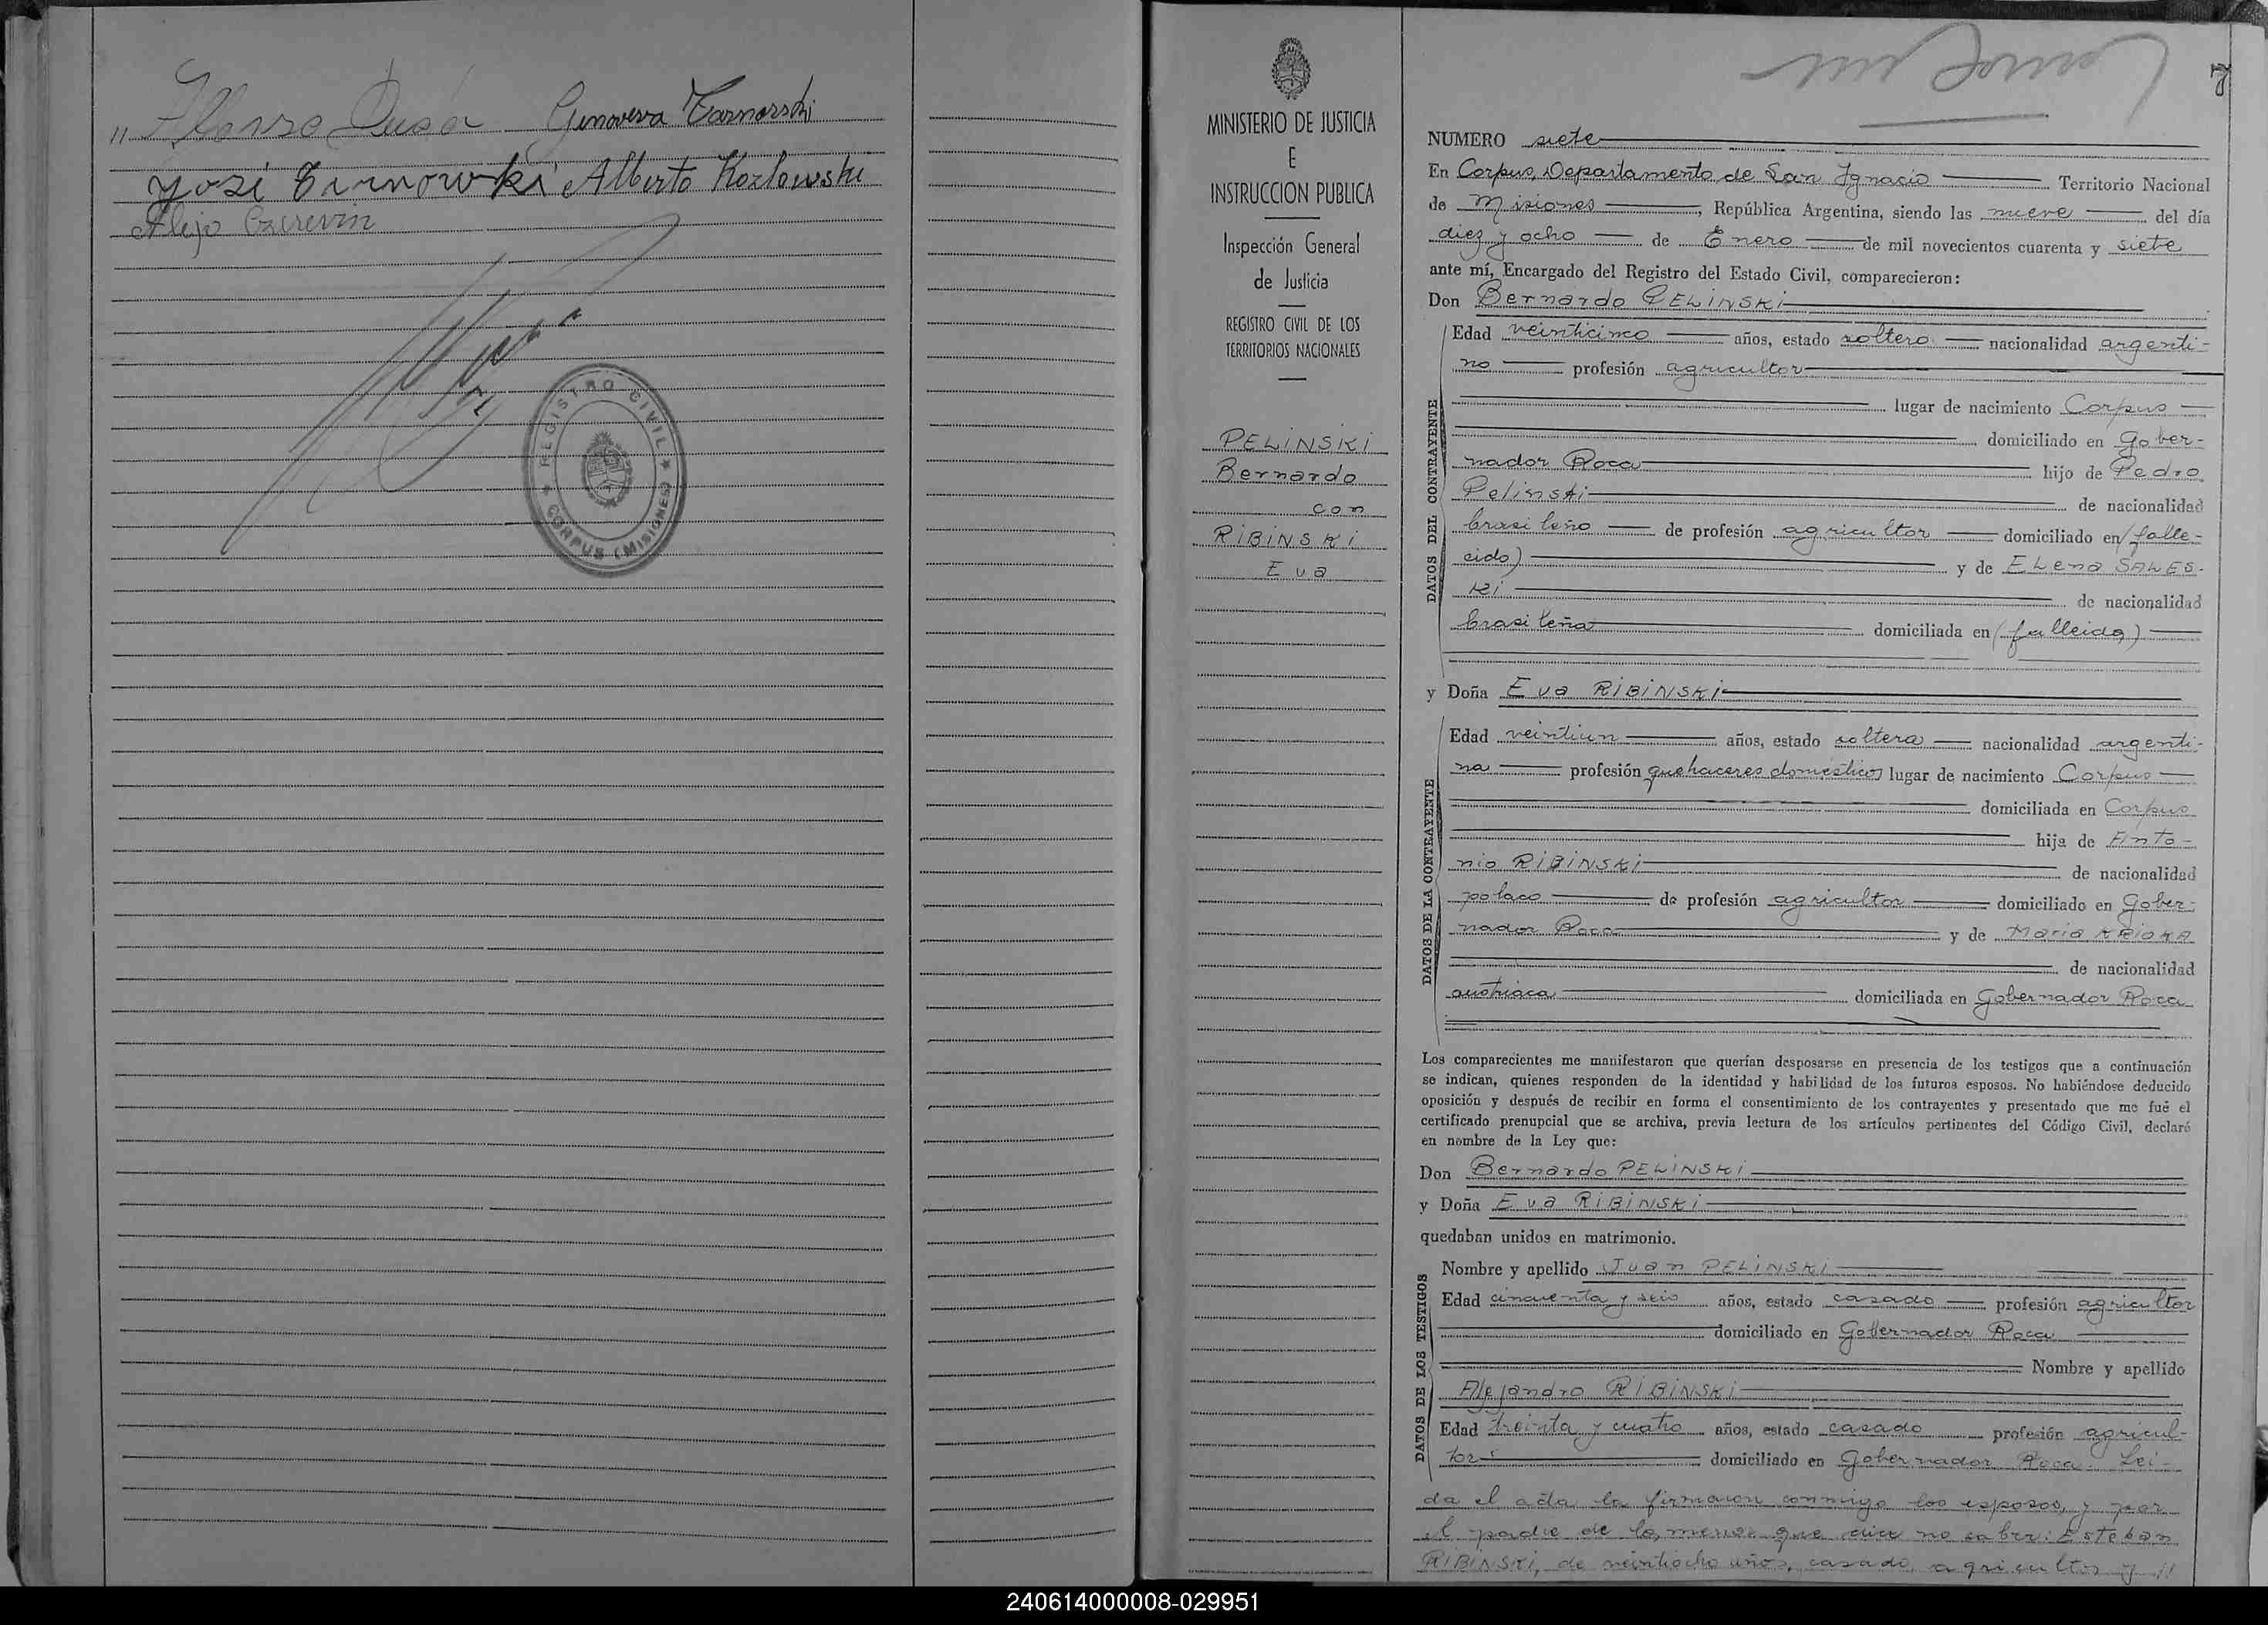 " Genoveva Tarnowski
José Tarnowski Alberto Kozlowski
Alejo
REGISTRO CIVIL
CORPUS (MISIONES)
MINISTERIO DE JUSTICIA
E
INSTRUCCION PUBLICA
Inspección General
de Justicia
REGISTRO CIVIL DE LOS
TERRITORIOS NACIONALES
PELINSKI
Bernardo
con
RIBINSKI
Eva
7
NUMERO siete
En Corpus, Departamento de San Ignacio Territorio Nacional
de Misiones, República Argentina, siendo las nueve del día
diez y ocho de Enero de mil novecientos cuarenta y siete
ante mí, Encargado del Registro del Estado Civil, comparecieron:
Don Bernardo PELINSKI
DATOS DEL CONTRAYENTE
Edad veinticinco años, estado soltero nacionalidad argenti-
no profesión agricultor
lugar de nacimiento Corpus
domiciliado en Gober-
nador Roca hijo de Pedro
Pelinski de nacionalidad
brasileño de profesión agricultor domiciliado en (falle-
cido) y de ELena SALES-
KI de nacionalidad
brasileña domiciliada en (falleida)
y Doña Eva RIBINSKI
DATOS DE LA CONTRAYENTE
Edad veintiun años, estado soltera nacionalidad argenti-
na profesión quehaceres domésticos lugar de nacimiento Corpus
domiciliada en Corpus
hija de Anto-
nio RIBINSKI de nacionalidad
polaco de profesión agricultor domiciliado en Gober-
nador Roca y de Maria
de nacionalidad
austriaca domiciliada en Gobernador Roca
Los comparecientes me manifestaron que querían desposarse en presencia de los testigos que a continuación
se indican, quienes responden de la identidad y habilidad de los futuros esposos. No habiéndose deducido
oposición y después de recibir en forma el consentimiento de los contrayentes y presentado que me fué el
certificado prenupcial que se archiva, previa lectura de los artículos pertinentes del Código Civil, declaré
en nombre de la Ley que:
Don Bernardo PELINSKI
y Doña Eva RIBINSKI
quedaban unidos en matrimonio.
DATOS DE LOS TESTIGOS
Nombre y apellido Juan PELINSKI
Edad cincuenta y seis años, estado casado profesión agricultor
domiciliado en Gobernador Roca
Nombre y apellido
Alejandro RIBINSKI
Edad treinta y cuatro años, estado casado profesión agricul-
tor domiciliado en Gobernador Roca. Lei-
da el acta la firmaron conmigo los esposos, y por
el padre de la menor que dice no saber: Esteban
RIBINSKI, de veintiocho años, casado, agricultor y //
240614000008-029951